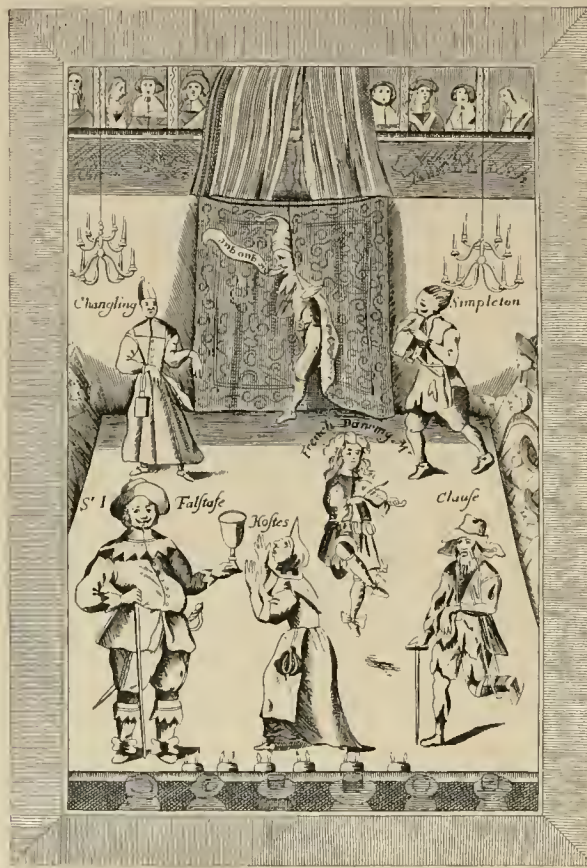 quo que
Changling
Simpleton
French Dancing Mr
Sr I Falſtafe
Hoſtes
Clauſe